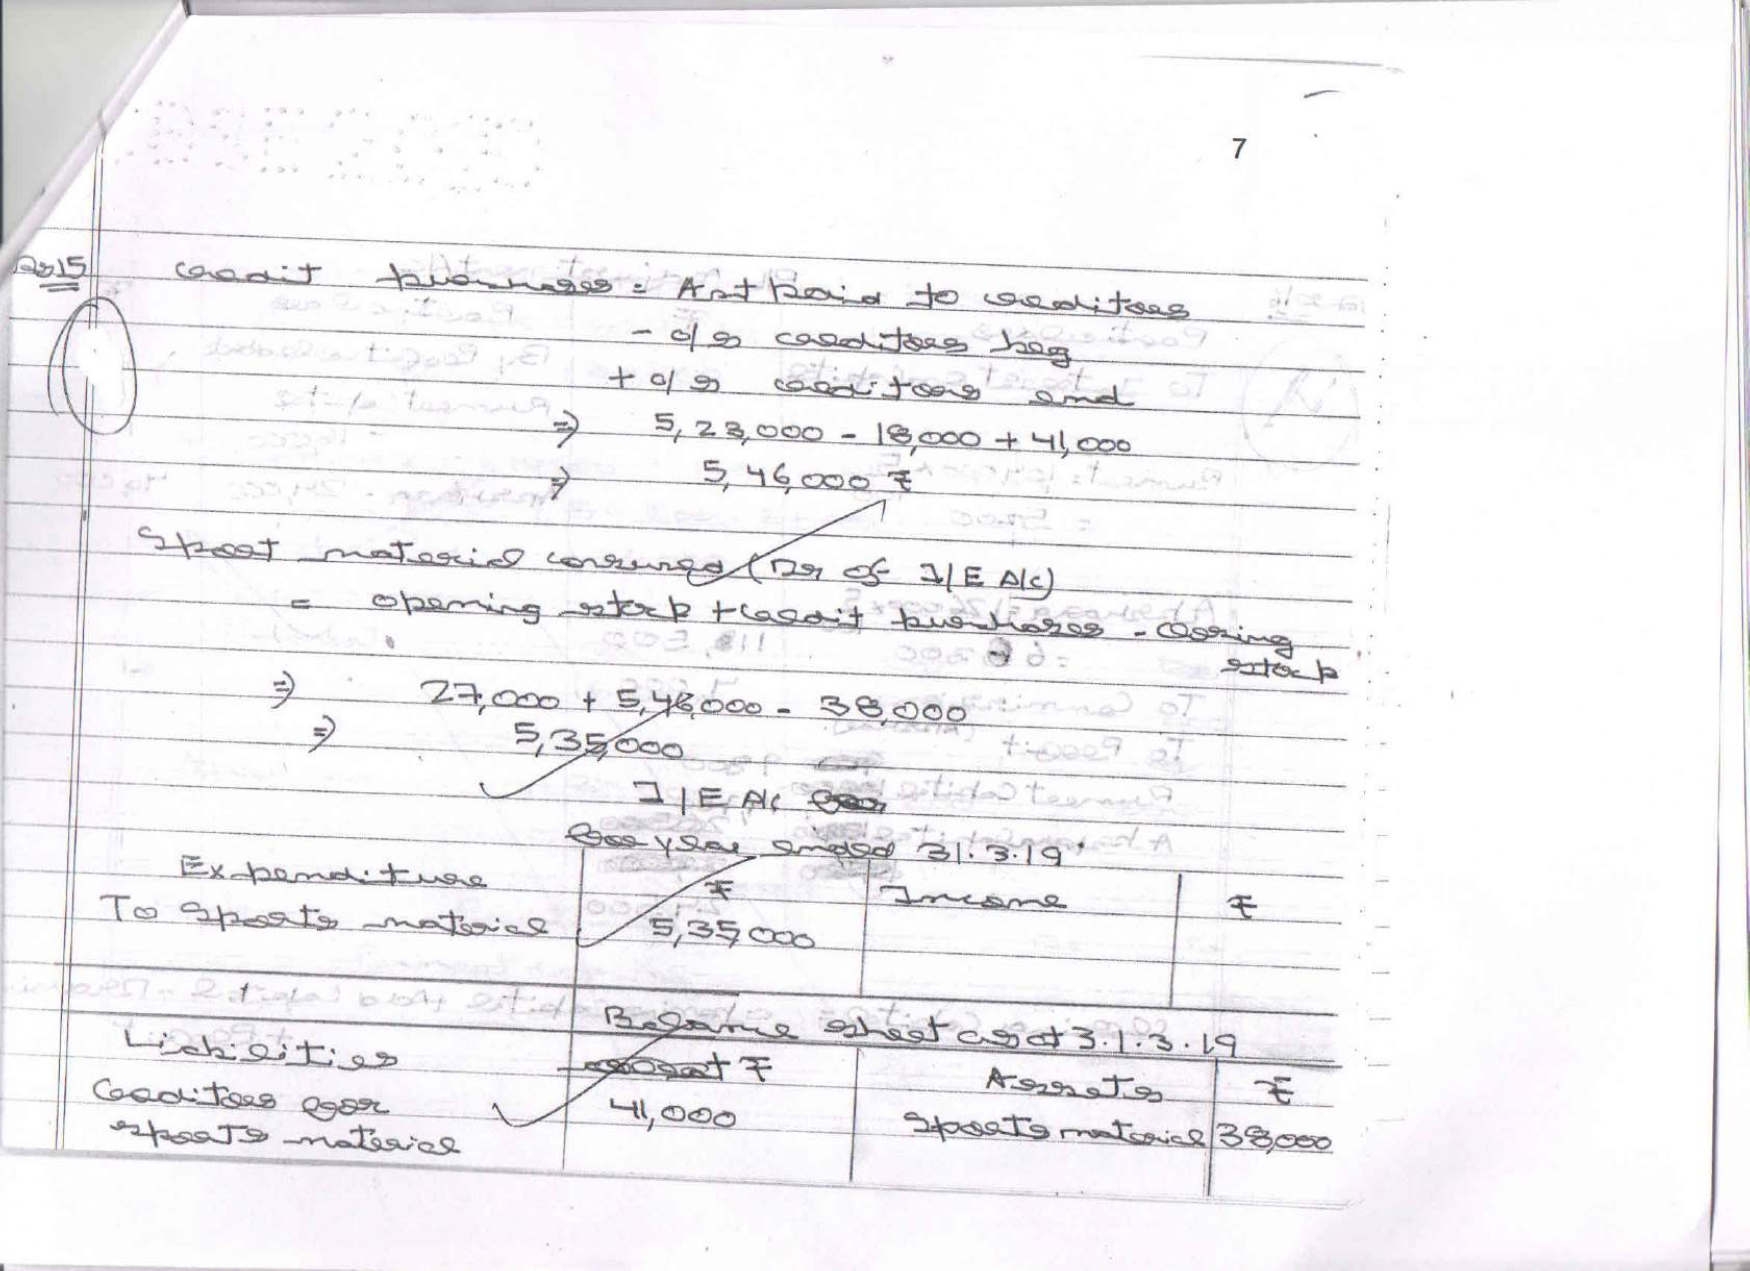 7
Ans15 Credit purchases = Amt paid to creditors
- o/s creditors beg
+ o/s creditors end
⇒ 5,23,000 - 18,000 + 41,000
⇒ 5,46,000 ₹
Sport material consumed (Dr of I/E A/c)
= opening stock + credit purchases - closing
stock
⇒ 27,000 + 5,46,000 - 38,000
⇒ 5,35,000
I/E A/c
for year ended 31.3.19
Expenditure ₹ Income ₹
To Sports material 5,35,000
Balance sheet as at 31.3.19
Liabilities ₹ Assets ₹
Creditors for 41,000 Sports material 38,000
sports material